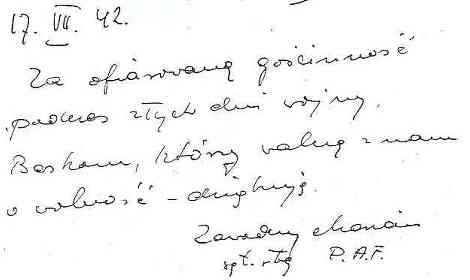 17. VII. 42.
Za ofiarowaną gościnność
podczas złych dni wojny.
Baskom, którzy walczą z nami
o wolność – dziękuję.
Zawadny Marian
sgt. P.A.F.